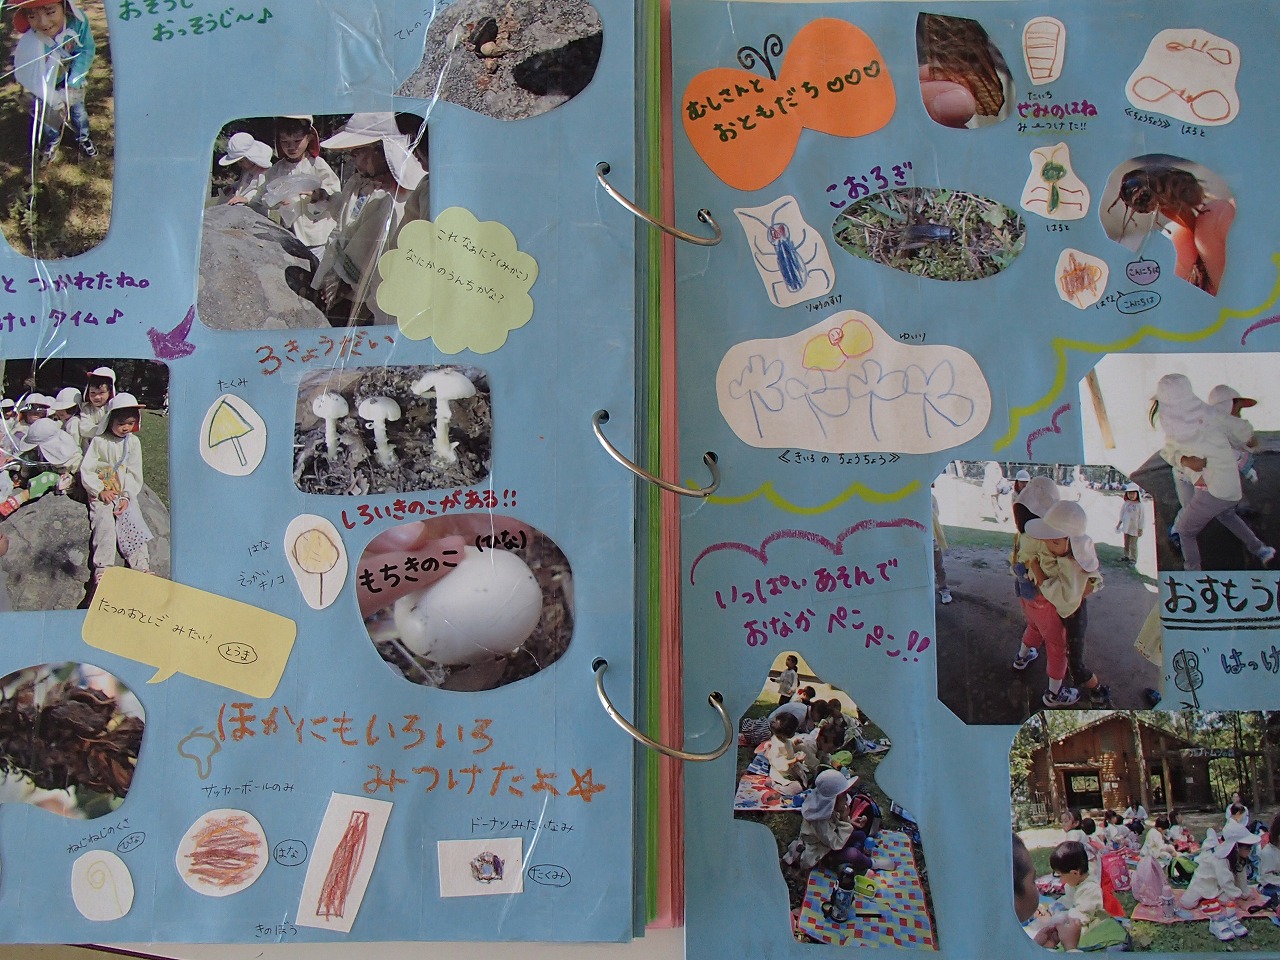 おそうじ
おっそうじ～♪
と つかれたね。
けい タイム♪
これ なぁに？(みかこ)
なにかのうんちかな？
3きょうだい
たくみ
しろいきのこがある!!
はな
でっかい
キノコ
もちきのこ (ひな)
たつのおとしご みたい!
とうま
ほかにもいろいろ
みつけたよ☆
サッカーボールのみ
ねじねじのくさ
ひな
はな
きのぼう
ドーナツみたいなみ
たくみ
むしさんと
おともだち♡♡♡
たいち
せみのはね
みーつけた!!
≪ちょうちょう≫ はると
こおろぎ
はると
りゅうのすけ
こんにちは
こんにちは
≪きいろの ちょうちょう≫
いっぱい あそんで
おなか ペこ
ペこ!!
おすもう
はっけ